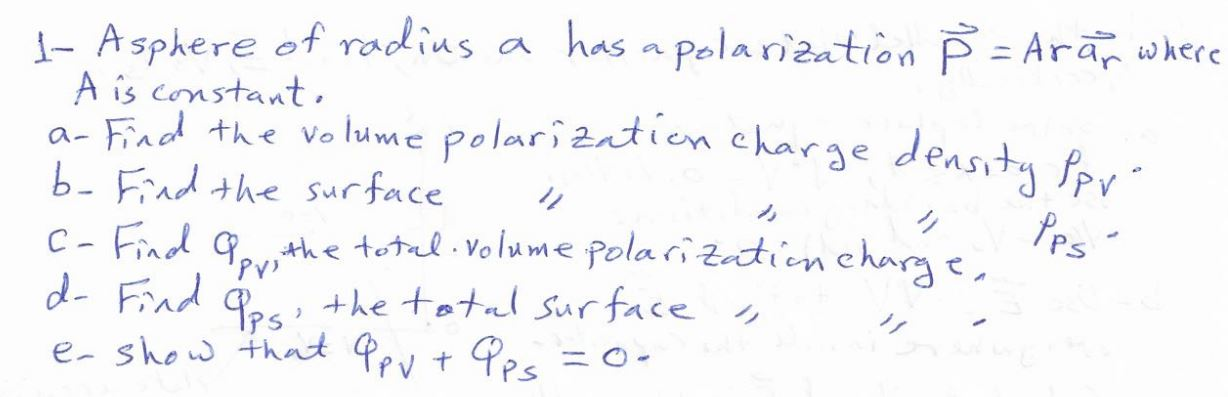 1- A sphere of radius a has a polarization P⃗ = Ar a⃗ᵣ where
A is constant.
a- Find the volume polarization charge density ρpv.
b- Find the surface 〃 〃 〃 ρps.
c- Find Qpv, the total volume polarization charge.
d- Find Qps, the total surface 〃 〃.
e- show that Qpv + Qps = 0.